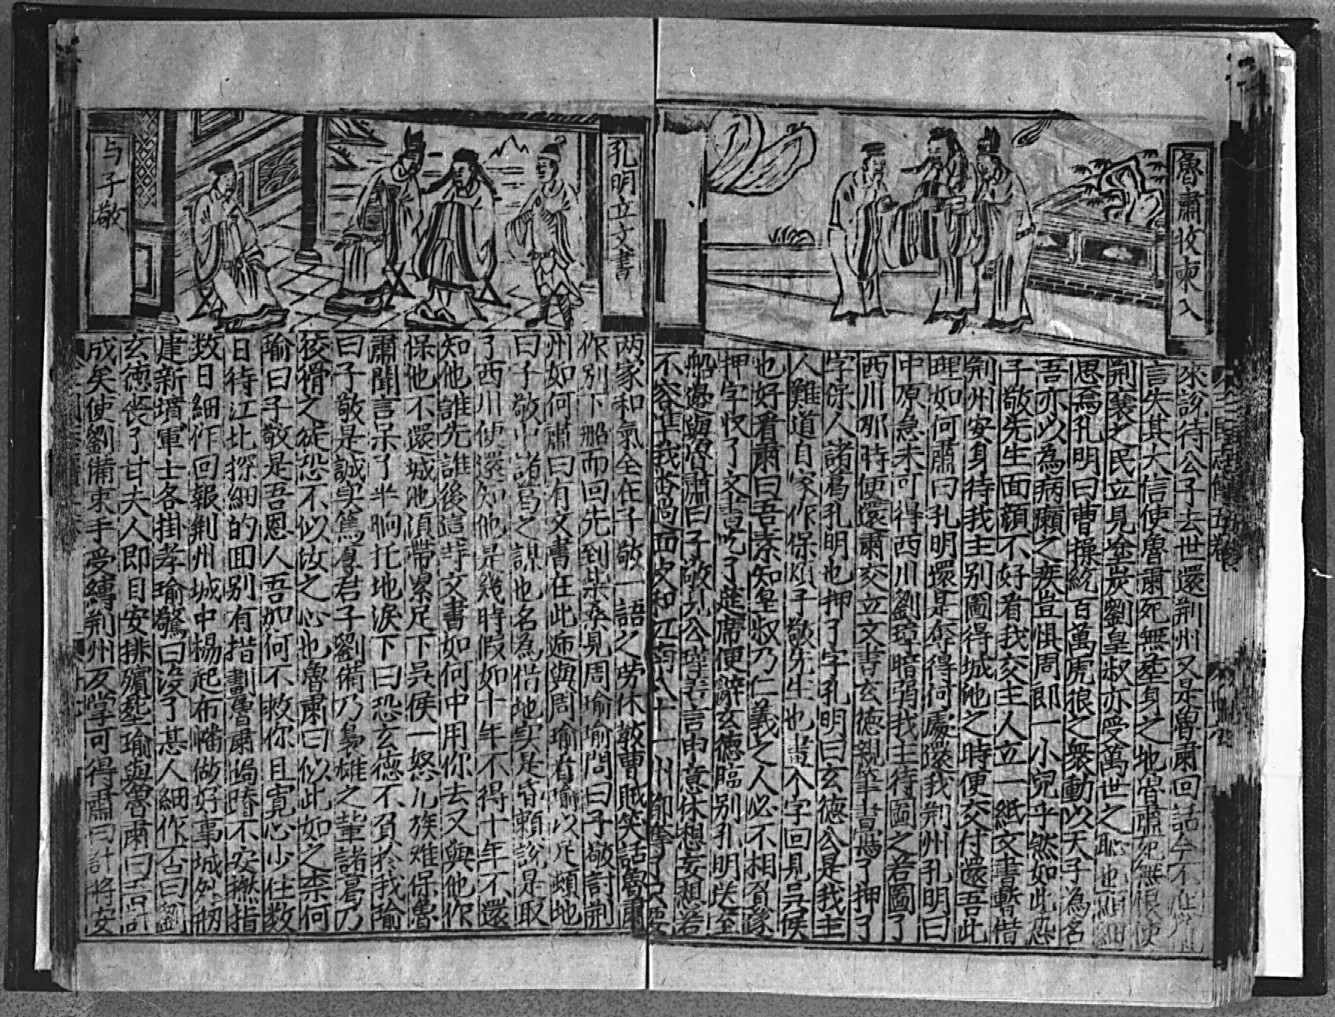 魯肅收柬入
来說待公子去世還荆州又是魯肅回話今不
言失其大信使魯肅死無塟身之地魯肅死無恨使
荆襄之民立見塗炭劉皇叔亦受萬世之恥也
思為孔明曰曹操統百萬虎狼之衆動以天子為名
吾亦以為病癩之疾豈惧周郎一小兒乎然如此恐
子敬先生面顔不好看我交主人立一紙文書暫借
荆州安身待我主别圖得城池之時便交付還吾此
理如何肅曰孔明還是奈得何處還我荆州孔明曰
中原急未可得西川劉璋暗弱我主待圖之若圖了
西川那時便還肅交立文書玄徳親筆書寫了押了
字保人諸葛孔明也押了字孔明曰玄德公是我主
人難道自家作保則子敬先生也畫个字回見吳侯
也好看肅曰吾素知皇叔乃仁義之人必不相負遂
押字收了文書吃了筵席便辭玄德臨别孔明送至
船邊與魯肅曰子敬見公瑾善言申意休想妄想若
不容准我番過面皮和江南八十一川都奪了只要
孔明立文書
与子敬
两家和氣全在子敬一語之劳休教曹賊笑話魯肅
作别下船而回先到柴桑見周瑜瑜問曰子敬討荆
州如何肅曰有文書在此逓與周瑜看瑜以足頓地
曰子敬中諸葛之謀也名為借地实是昏賴說是取
了西川便還知他是幾時假如十年不得十年不還
知他誰先誰後這等文書如何中用你去又與他作
保他不還城池湏帶累足下吳侯一怒九族难保魯
肅聞言呆了半晌托地淚下曰恐玄德不負於我瑜
曰子敬是誠实篤厚君子劉備乃梟雄之輩諸葛乃
狡猾之徒恐不似汝之心也魯肅曰似此如之柰何
瑜曰子敬是吾恩人吾如何不救你且寛心少住数
日待江北探細的囬别有措劃魯肅跼蹐不安撚指
数日細作回報荆州城中楊起布幡做好事城外剏
建新墳軍士各掛孝瑜驚曰没了甚人細作答曰劉
玄德丧了甘夫人即目安排殯塟瑜與魯肅曰吾計
成矣使劉備束手受縛荆州反掌可得肅曰計将安